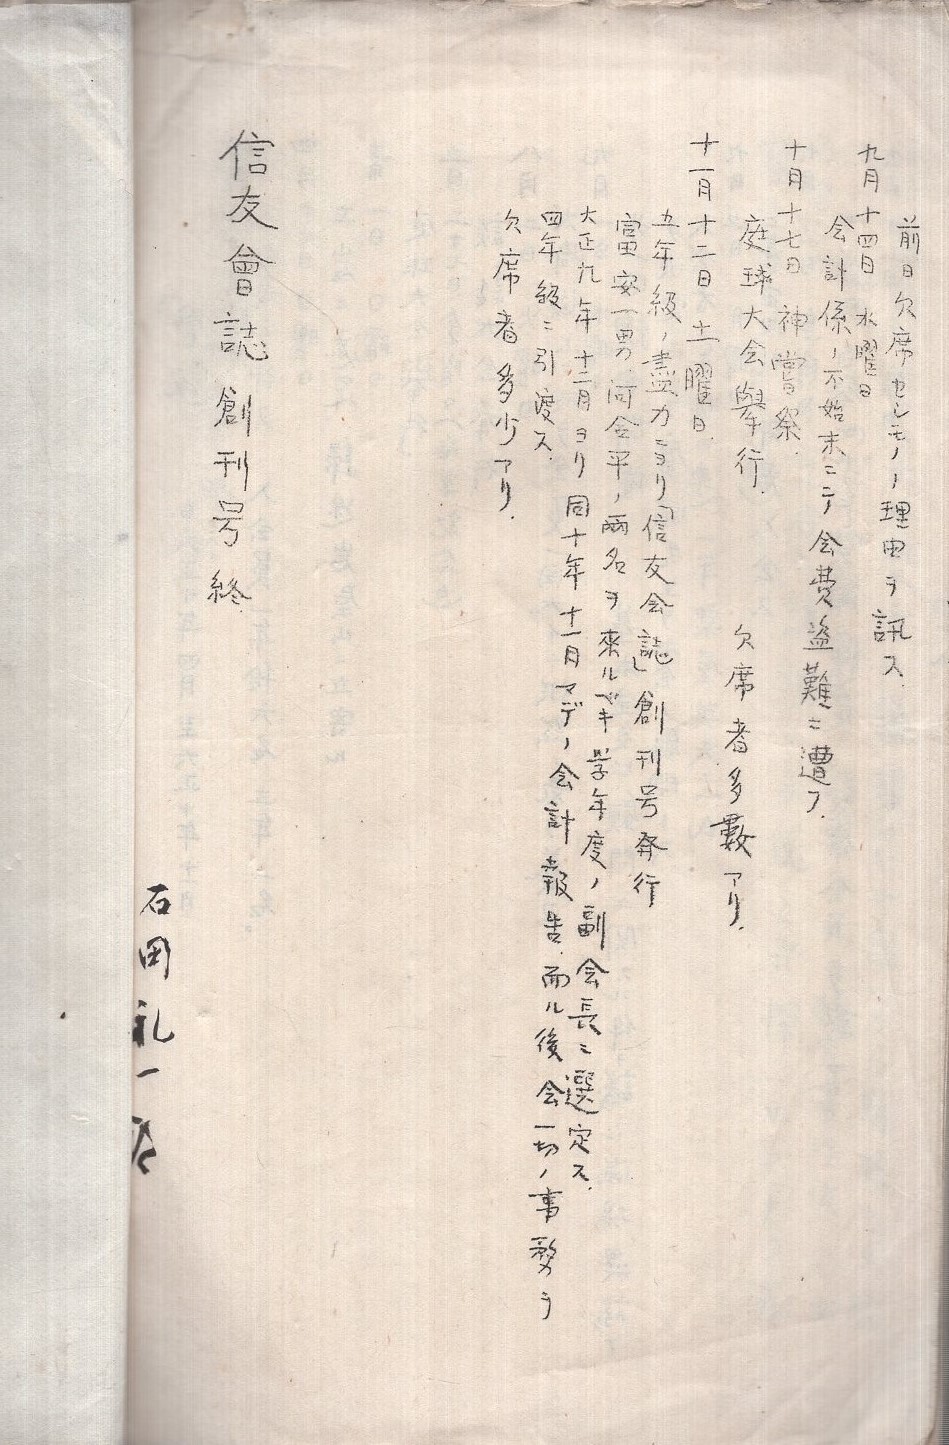 前日欠席セシモノノ理由ヲ訊ス.
九月十四日水曜日
会計係ノ不始末ニテ会費盗難ニ遭フ.
十月十七日神嘗祭.
庭球大会擧行. 欠席者多數アリ.
十一月十二日土曜日.
五年級ノ盡力ニヨリ「信友会誌」創刊号発行
富安一男、河合平ノ兩名ヲ來ルベキ学年度ノ副会長ニ選定ス.
大正九年十二月ヨリ同十年十一月マデノ会計報告.而ル後会一切ノ事務ヲ
四年級ニ引渡ス.
欠席者多少アリ.
信友會誌創刊号終.
石田礼一